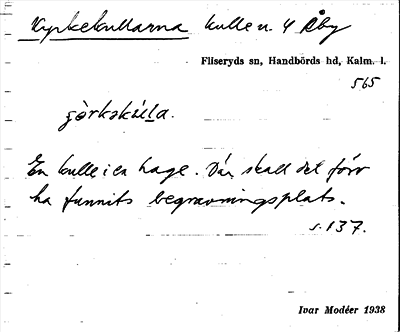 Kyrkekullarna kulle n. 4 Åby
Fliseryds sn, Handbörds hd, Kalm. l.
565
çòrkəkùl̲l̲a.
En kulle i en hage. Där skall det förr
ha funnits begravningsplats.
s. 137.
Ivar Modéer 1938